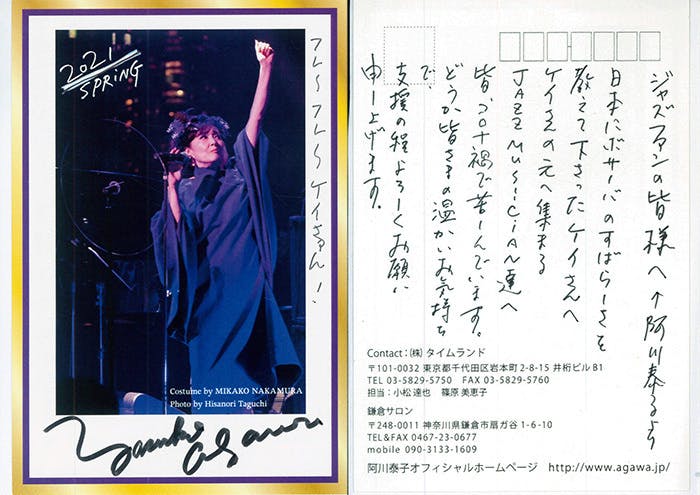 2021
SPRiNG
フレーフレーケイさーん!
Costume by MIKAKO NAKAMURA
Photo by Hisanori Taguchi
Yasuko Agawa
ジャズファンの皆様へ↑阿川泰子より
日本にボサノバのすばらしさを
教えて下さったケイさんへ
ケイさんの元へ集まる
JAZZ MUSiCiAN達へ
皆、コロナ禍で苦しんでいます。
どうか皆さまの温かいお気持ち
で、
支援の程よろしくお願い
申し上げます。
Contact:(株)タイムランド
〒101-0032 東京都千代田区岩本町2-8-15 井桁ビルB1
TEL 03-5829-5750 FAX 03-5829-5760
担当:小松 達也 篠原 美恵子
鎌倉サロン
〒248-0011 神奈川県鎌倉市扇ガ谷1-6-10
TEL&FAX 0467-23-0677
mobile 090-3133-1609
阿川泰子オフィシャルホームページ http://www.agawa.jp/